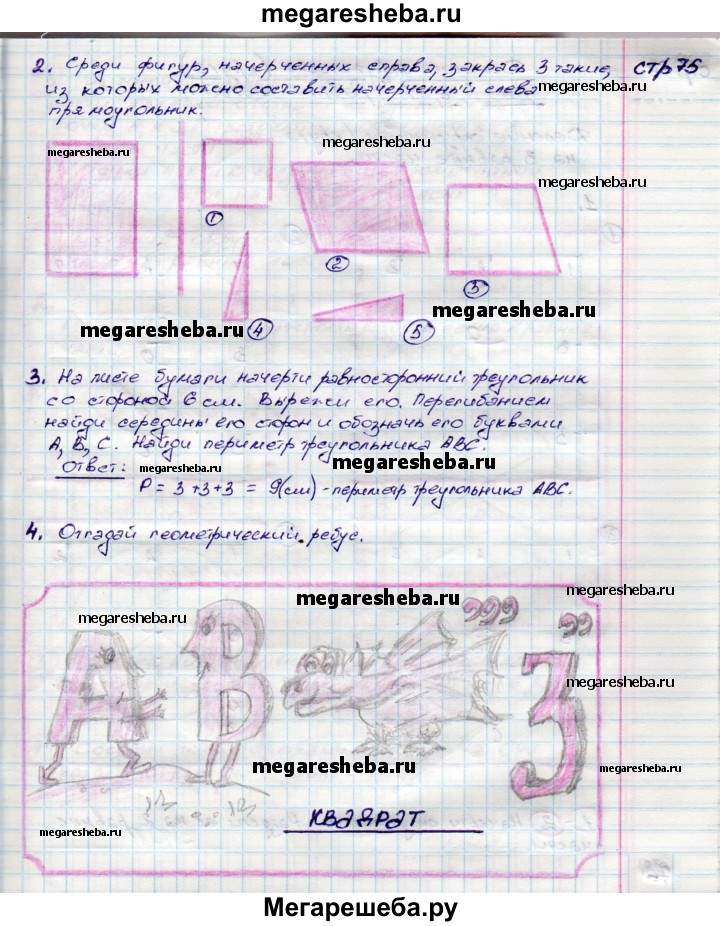 megaresheba.ru
2. Среди фигур, начерченных справа, закрась 3 такие, стр 75
из которых можно составить начерченный слева
прямоугольник.
megaresheba.ru
megaresheba.ru
megaresheba.ru
megaresheba.ru
1
2
3
megaresheba.ru
megaresheba.ru
4
5
3. На листе бумаги начерти равносторонний треугольник
со стороной 6 см. Вырежи его. Перегибанием
найди середины его сторон и обозначь его буквами
А, В, С. Найди периметр треугольника АВС.
Ответ: megaresheba.ru megaresheba.ru
Р = 3+3+3 = 9(см) - периметр треугольника АВС.
4. Отгадай геометрический ребус.
megaresheba.ru
megaresheba.ru
megaresheba.ru
,,, ,,
А В З
megaresheba.ru
megaresheba.ru
megaresheba.ru
КВАДРАТ
megaresheba.ru
megaresheba.ru
Мегарешеба.ру